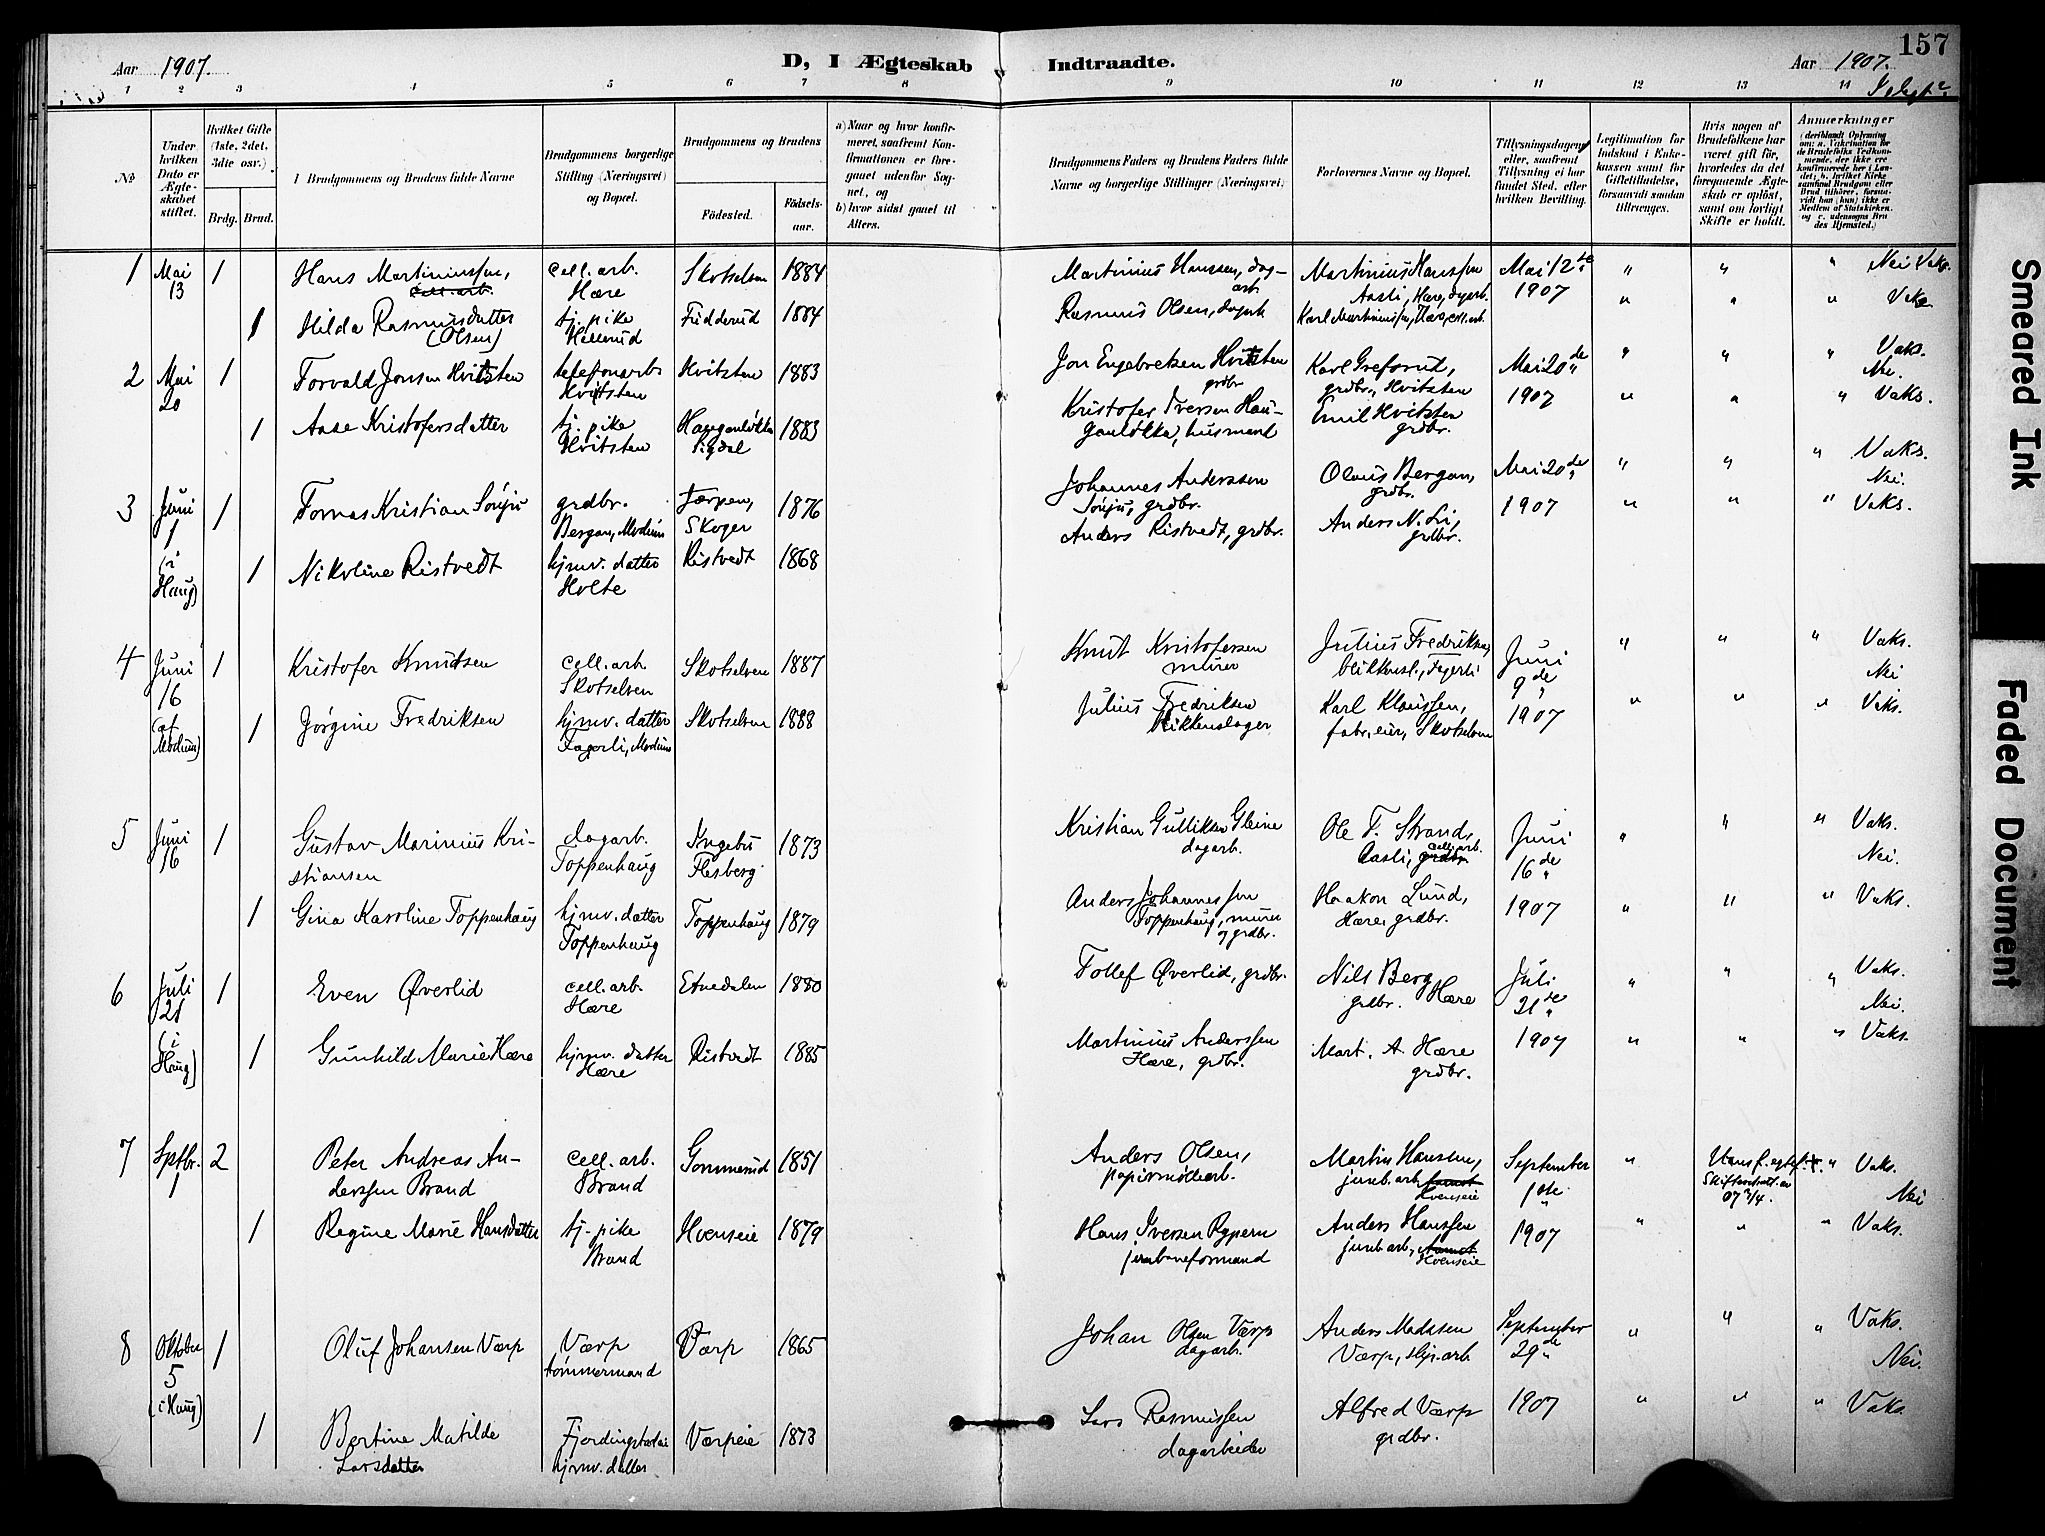 157
Aar 1907.
D, I Ægteskab
Indtraadte.
Aar 1907.
1 2 3 4 5 6 7 8 9 10 11 12 13 14
No
Under hvilken Dato er Ægteskabet stiftet.
Hvilket Gifte (1ste, 2det, 3die osv.)
Brdg. Brud.
Brudgommens og Brudens fulde Navne
Brudgommens borgerlige Stilling (Næringsvei) og Bopæl.
Brudgommens og Brudens
Fødested.
Fødsels-aar.
a) Naar og hvor konfirmeret, saafremt Konfirmationen er foregaaet udenfor Sognet, og
b) hvor sidst gaaet til Alters.
Brudgommens Faders og Brudens Faders fulde Navne og borgerlige Stillinger (Næringsvei)
Forlovernes Navne og Bopæl.
Tillysningsdagene eller, saafremt Tillysning ei har fundet Sted, efter hvilken Bevilling.
Legitimation for Indskud i Enkekassen samt for Giftetilladelse, forsaavidt saadan tiltrænges.
Hvis nogen af Brudefolkene har været gift før, hvorledes da det foregaaende Ægteskab er opløst, samt om lovligt Skifte er holdt.
Anmærkninger
1 Mai 13 1 Hans Martiniussen, cell. arb. Hære Skotselven 1884 Martinius Hanssen, dagarb. Martinius Hanssen Aasli, Hære, dagarb. Mai 12te 1907 " " " Nei Vaks.
1 Hilda Rasmusdatter (Olsen) tj. pike Hellerud Fidderud 1884 Rasmus Olsen, dagarb. Karl Martiniussen, Hære, cell. arb. " " " Vaks
2 Mai 20 1 Torvald Jonsen Hvitsten telefonarb. Hvitsten Hvitsten 1883 Jon Engebretsen Hvitsten grdbr. Karl Grefsrud, grdbr., Hvitsten Mai 20de 1907 " " " Vaks. Nei.
1 Aase Kristofersdatter tj. pike Hvitsten Hauganløkka Sigdal 1883 Kristofer Iversen Hauganløkka, husmand Emil Hvitsten grdbr. " " " Vaks.
3 Juni 1 (i Haug) 1 Tomas Kristian Sønju grdbr. Bergan, Modum Jarpen, Skoger 1876 Johannes Anderssen Sønju, grdbr. Olaus Bergan, grdbr. Mai 20de 1907 " " " Vaks. Nei.
1 Nikoline Ristvedt hjmv. datter Holte Ristvedt 1868 Anders Ristvedt, grdbr. Anders N. Li, grdbr. " " " Vaks.
4 Juni 16 (af Modum) 1 Kristofer Knutsen cell. arb Skotselven Skotselven 1887 Knut Kristofersen murer Julius Fredriksen, blikkensl., Fagerli Juni 9de 1907 " " " Vaks. Nei
1 Jørgine Fredriksen hjmv. datter Fagerli, Modum Skotselven 1888 Julius Fredriksen blikkenslager Karl Klaussen, fabr. eier, Skotselven " " " Vaks.
5 Juni 16 1 Gustav Marinius Kristiansen dagarb. Toppenhaug Ingebu Flesberg 1873 Kristian Gulliksen Gleine dagarb. Ole T. Strand, cell. arb. Aasli, grdbr. Juni 16de 1907 " " " Vaks. Nei.
1 Gina Karoline Toppenhaug hjmv. datter Toppenhaug Toppenhaug 1879 Anders Johannessen Toppenhaug, murer og grdbr. Haakon Lund, Hære, grdbr. " " " Vaks.
6 Juli 21 (i Haug) 1 Even Øverlid cell. arb. Hære Etnedalen 1880 Tollef Øverlid, grdbr. Nils Berg grdbr. Hære Juli 21de 1907 " " " Vaks. Nei.
1 Gunhild Marie Hære hjmv. datter Hære Ristvedt 1885 Martinius Anderssen Hære, grdbr. Mart. A. Hære grdbr. " " " Vaks.
7 Septbr. 1 2 Peter Andreas Anderssen Brand cell. arb. Brand Gommerud 1851 Anders Olsen, papirmøllearb. Martin Hanssen, jernb. arb. Hvenseie September 1ste 1907 " Hans f. egtef. Skifteattest av 07 " Vaks. Nei
1 Regine Marie Hansdatter tj. pike Brand Hvenseie 1879 Hans Iversen Rypern jernbaneformand Anders Hanssen jernb. arb., Hvenseie " " " Vaks.
8 Oktober 5 (i Haug) 1 Oluf Johansen Værp Værp tømmermand Værp 1865 Johan Olsen Værp dagarb. Anders Madssen Værp, slip. arb September 29de 1907 " " " Vaks. Nei.
1 Bertine Matilde Larsdatter hjmv. datter Værpeie 1873 Lars Rasmussen dagarbeider Alfred Værp grdbr. " " " Vaks
Smeared Ink
Faded Document